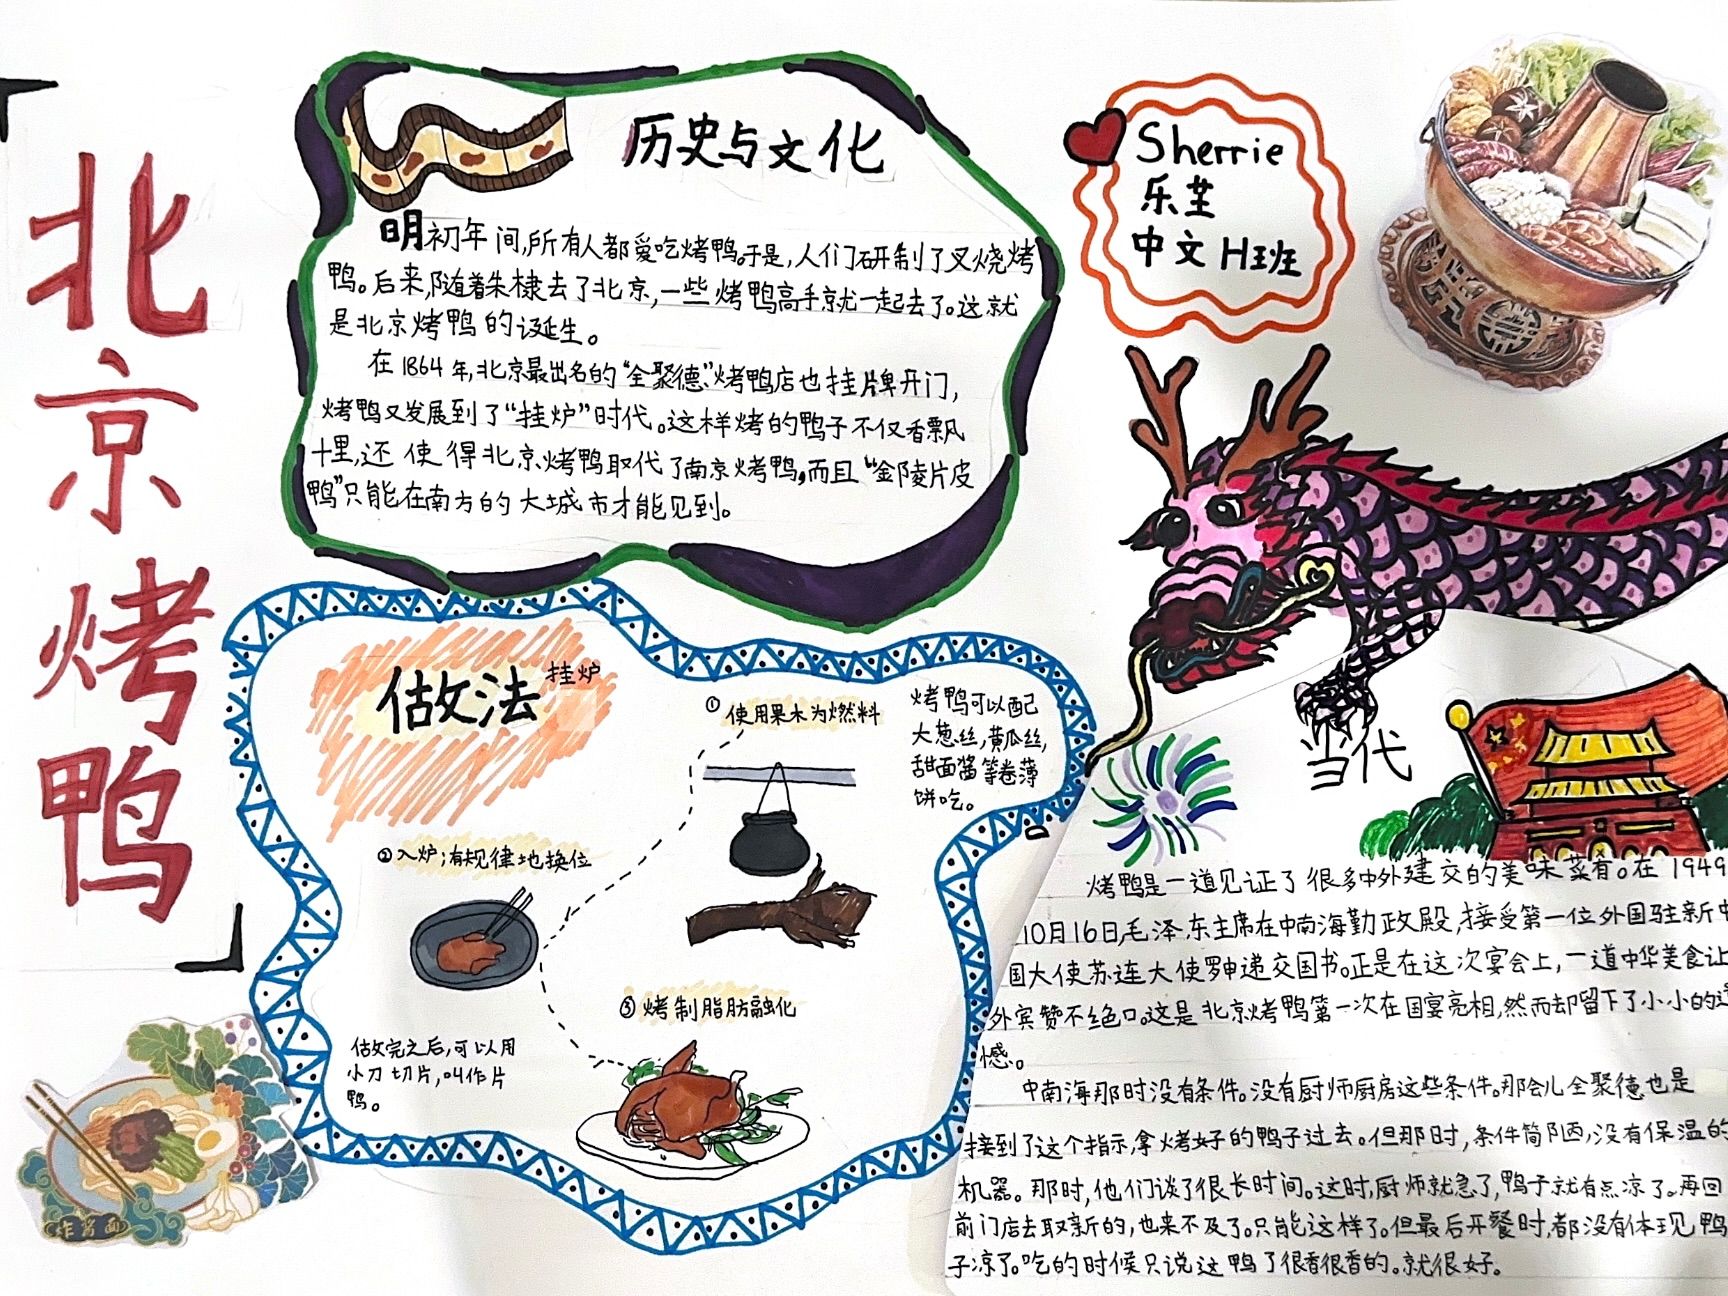 北京烤鸭
历史与文化
明初年间,所有人都爱吃烤鸭。于是,人们研制了叉烧烤
鸭。后来,随着朱棣去了北京,一些烤鸭高手京就一起去了。这就
是北京烤鸭的诞生。
在1864年,北京最出名的“全聚德”烤鸭店也挂牌开门,
烤鸭又发展到了“挂炉”时代。这样烤的鸭子不仅香飘
十里,还使得北京烤鸭取代了南京烤鸭,而且“金陵片皮
鸭”只能在南方的大城市才能见到。
Sherrie
乐芏
中文H班
做法
挂炉
①使用果木为燃料
烤鸭可以配
大葱丝,黄瓜丝,
甜面酱等卷薄
饼吃。
②入炉;有规律地换位
③烤制脂肪融化
做完之后,可以用
小刀切片,叫作片
鸭。
炸酱面
当代
烤鸭是一道见证了很多中外建交的美味菜肴。在1949
10月16日,毛泽东主席在中南海勤政殿,接受第一位外国驻新中
国大使苏连大使罗申递交国书。正是在这次宴会上,一道中华美食让
外宾赞不绝口。这是北京烤鸭第一次在国宴亮相,然而却留下了小小的遗
憾。
中南海那时没有条件。没有厨师厨房这些条件。那会儿全聚德也是
接到了这个指示,拿烤好的鸭子过去。但那时,条件简陋,没有保温的
机器。那时,他们谈了很长时间。这时,厨师就急了,鸭子就有点凉了。再回
前门店去取新的,也来不及了。只能这样了。但最后开餐时,都没有体现鸭
子凉了。吃的时候只说这鸭了很香很香的。就很好。